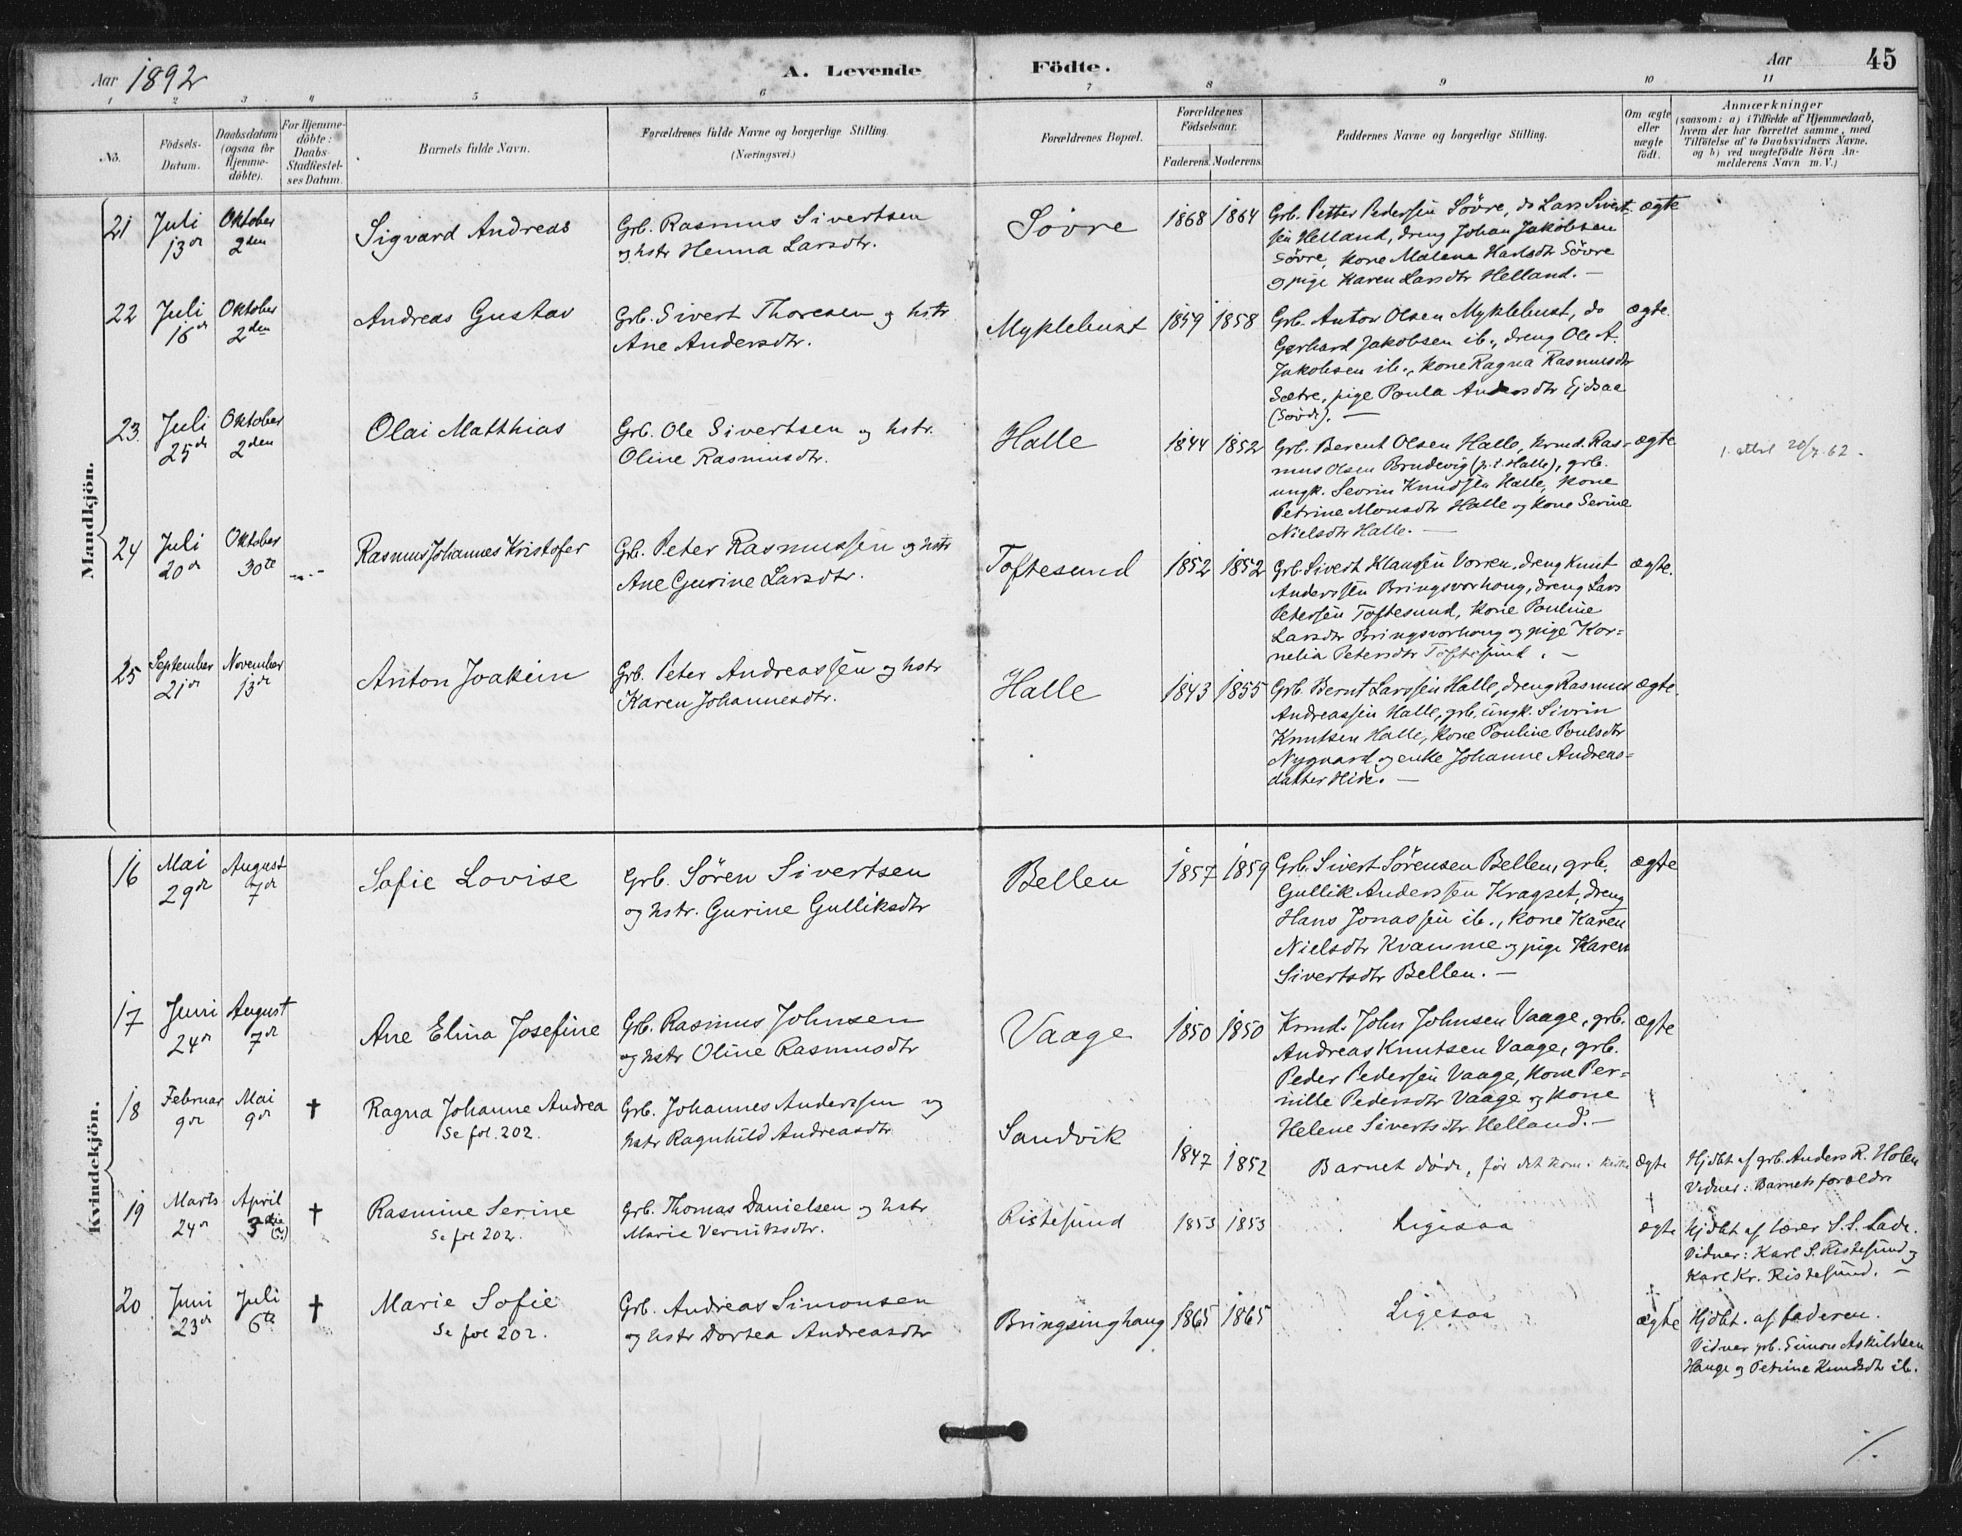 Aar 1892
A. Levende
Födte.
Aar
45
1 2 3 4 5 6 7 8 9 10 11
No.
Födsels-
Datum.
Daabsdatum
(ogsaa for
Hjemme-
döbte).
For Hjemme-
döbte:
Daabs-
Stadfæstel-
ses Datum.
Barnets fulde Navn.
Forældrenes fulde Navne og borgerlige Stilling.
(Næringsvei.)
Forældrenes Bopæl.
Forældrenes
Födselsaar.
Faderens. Moderens.
Faddernes Navne og borgerlige Stilling.
Om ægte
eller
uægte
født.
Anmærkninger
(saasom: a) i Tilfælde af Hjemmedaab,
hvem der har forrettet samme, med
Tilföielse af to Daabsvidners Navne,
og b) ved uægtefödte Börn An-
melderens Navn m. V.)
Mandkjön.
21
Juli
13de
Oktober
2den
Sigvard Andreas
Grb. Rasmus Sivertsen
og hstr Henna Larsdtr.
Søvre
1868 1864
Grb. Petter Pedersen Søvre, do Lars Sivert-
sen Helland, dreng Johan Jakobsen
Søvre, kone Malene Karlsdtr Søvre
og pige Karen Larsdtr Helland. —
ægte
22
Juli
16de
Oktober
2den
Andreas Gustav
Grb. Sivert Thoresen og hstr
Ane Andersdtr.
Myklebust
1859 1858
Grb. Anton Olsen Myklebust, do
Gerhard Jakobsen ib., dreng Ole A.
Jakobsen ib., kone Ragna Rasmusdtr
Sætre, pige Paula Andersdtr Ejdsaa
(Søvde). —
ægte.
23.
Juli
25de
Oktober
2den
Olai Matthias
Grb. Ole Sivertsen og hstr.
Oline Rasmusdtr.
Halle
1844 1852
Grb. Berent Olsen Halle, krmd. Ras-
mus Olsen Brudevig (p.t. Halle), grb.
ungk. Sevrin Knudsen Halle, kone
Petrine Monsdtr Halle og kone Serine
Nielsdtr Halle. —
ægte
1. attest 20/7.62.
24
Juli
20de
Oktober
30te
Rasmus Johannes Kristofer
Grb. Peter Rasmussen og hstr
Ane Gurine Larsdtr.
Toftesund
1852 1852
Grb. Sivert Klaussen Vorren, dreng Knut
Anderssen Bringsvorhoug, dreng Lars
Petersen Toftesund, kone Pauline
Larsdtr Bringsvorhoug og pige Kor-
nelia Petersdtr Toftesund. —
ægte.
25
September
21de
November
13de
Anton Joakim
Grb. Peter Andreassen og hstr
Karen Johannesdtr.
Halle
1843 1855
Grb. Bernt Larssen Halle, dreng Rasmus
Andreassen Halle, grb. ungk. Sivrin
Knutsen Halle, kone Pauline Poulsdtr
Nygaard og enke Johanne Andreas-
datter Hide. —
ægte.
Kvindekjön.
16
Mai
29de
August
7de
Sofie Lovise
Grb. Søren Sivertsen
og hstr. Gurine Gulliksdtr
Bellen
1857 1859
Grb. Sivert Sørensen Bellen, grb.
Gullik Anderssen Kragset, dreng
Hans Jonassen ib., kone Karen
Nielsdtr Kvamme og pige Karen
Sivertsdtr Bellen. —
ægte
17
Juni
24de
August
7de
Ane Elina Josefine
Grb. Rasmus Johnsen
og hstr Oline Rasmusdtr
Vaage
1850 1850
Krmd. John Johnsen Vaage, grb.
Andreas Knutsen Vaage, grb.
Peder Pedersen Vaage, kone Per-
nille Pedersdtr Vaage og kone
Helene Sivertsdtr Helland. —
ægte
18
Februar
9de
Mai
9de
†
Ragna Johanne Andrea
Se fol. 202.
Grb. Johannes Anderssen og
hstr Ragnhild Andreasdtr
Sandvik
1847 1852
Barnet døde, før det kom i kirke
†
ægte
Hjdbt af grb. Anders R. Holen
Vidner: Barnets forældre
19
Marts
24de
April
3die
†
Rasmine Serine
Se fol 202.
Grb. Thomas Danielsen og hstr
Marie Verniksdtr.
Ristesund
1853 1853
Ligesaa
†
ægte
Hjdbt af lærer S. S. Lade.
Vidner: Karl S. Ristesund og
Karl Kr. Ristesund. —
20
Juni
23de
Juli
6te
†
Marie Sofie
Se fol 202.
Grb. Andreas Simonsen
og hstr Dortea Andreasdtr
Bringsinghaug
1865 1865
Ligesaa
†
ægte
Hjdbt. af faderen.
Vidner grb. Simon Askildsen
Hauge og Petrine Knudsdtr ib.